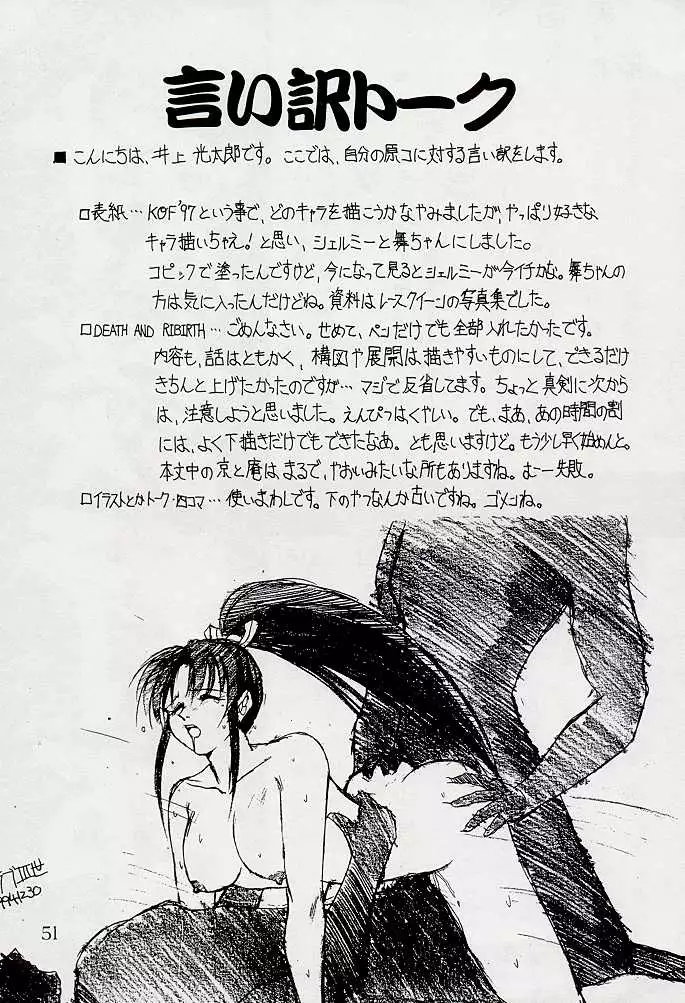 言い訳トーク
■こんにちは、井上光太郎です。ここでは、自分の原コに対する言い訳をします。
□表紙…KOF'97という事で、どのキャラを描こうかなやみましたが、やっぱり好きな
キャラ描いちゃえ！と思い、シェルミーと舞ちゃんにしました。
コピックで塗ったんですけど、今になって見るとシェルミーが今イチかな。舞ちゃんの
方は気に入ったんだけどね。資料はレースクイーンの写真集でした。
□DEATH AND RIBIRTH…ごめんなさい。せめて、ペンだけでも全部入れたかったです。
内容も、話はともかく、構図や展開は描きやすいものにして、できるだけ
きちんと上げたかったのですが…マジで反省してます。ちょっと真剣に次から
は、注意しようと思いました。えんぴつはくやしい。でも、まあ、あの時間の割
には、よく下描きだけでもできたなあ。とも思いますけど。もう少し早く始めんと。
本文中の京と庵は、まるで、やおいみたいな所もありますね。むー失敗。
□イラストとかトーク・四コマ…使いまわしです。下のやつなんか古いですね。ゴメンね。
51